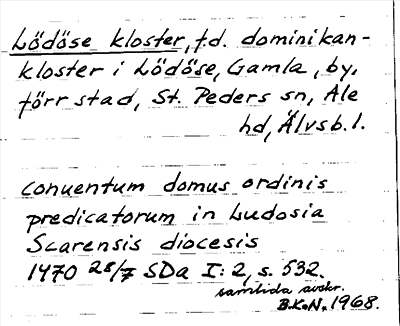 Lödöse kloster, f.d. dominikan-
kloster i Lödöse, Gamla, by,
förr stad, St. Peders sn, Ale
hd, Älvsb. l.
conuentum domus ordinis
predicatorum in Ludosia
Scarensis diocesis
1470 28/7 SDa I: 2, s. 532.
samtida avskr.
B.K.N. 1968.